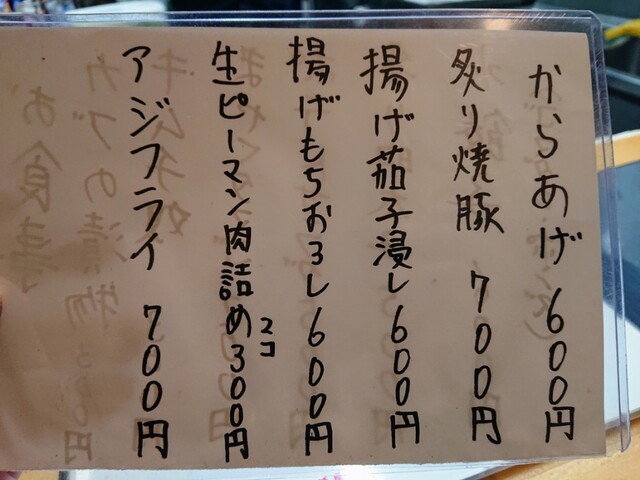 からあげ 600円
炙り焼豚 700円
揚げ茄子浸し600円
揚げもちおろし600円
生ピーマン肉詰め2コ300円
アジフライ 700円
キムチ
カブの漬物 300円
お食事